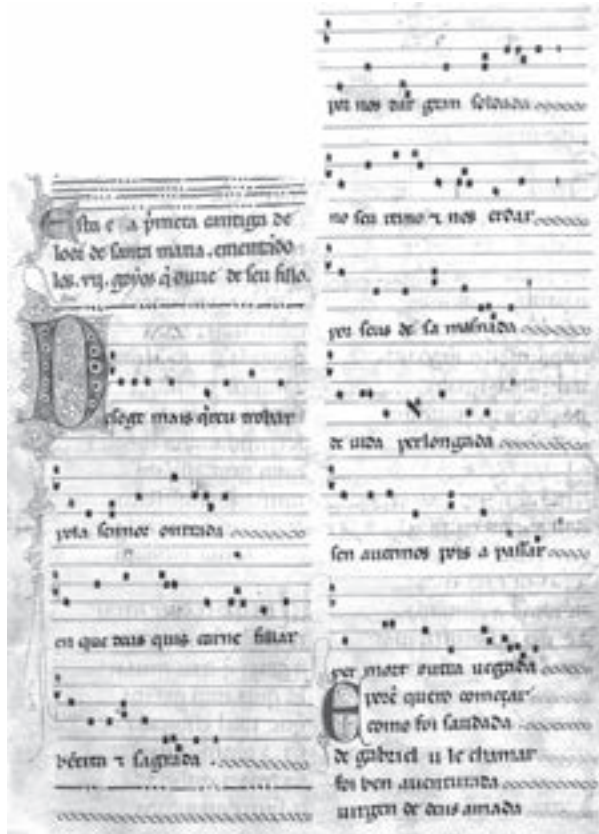 Esta e a p̃meira cantiga de
looř de santa maria. ementãdo
los. vij. goyos q̃ ouue de seu fillo.
Des oge mais q̃r eu trobar
pola sennor onrrada
en que deus quis carne fillar
bẽeita ⁊ sagrada.
por nos dar gran soldada
no seu reino ⁊ nos erdar
por seus de sa masnada
de uida perlongada
sen auermos pois a passar
per mort outra uegada
E poren quero começar
como foi saudada
de gabriel u le chamar
foi ben auenturada
uirgen de deus amada